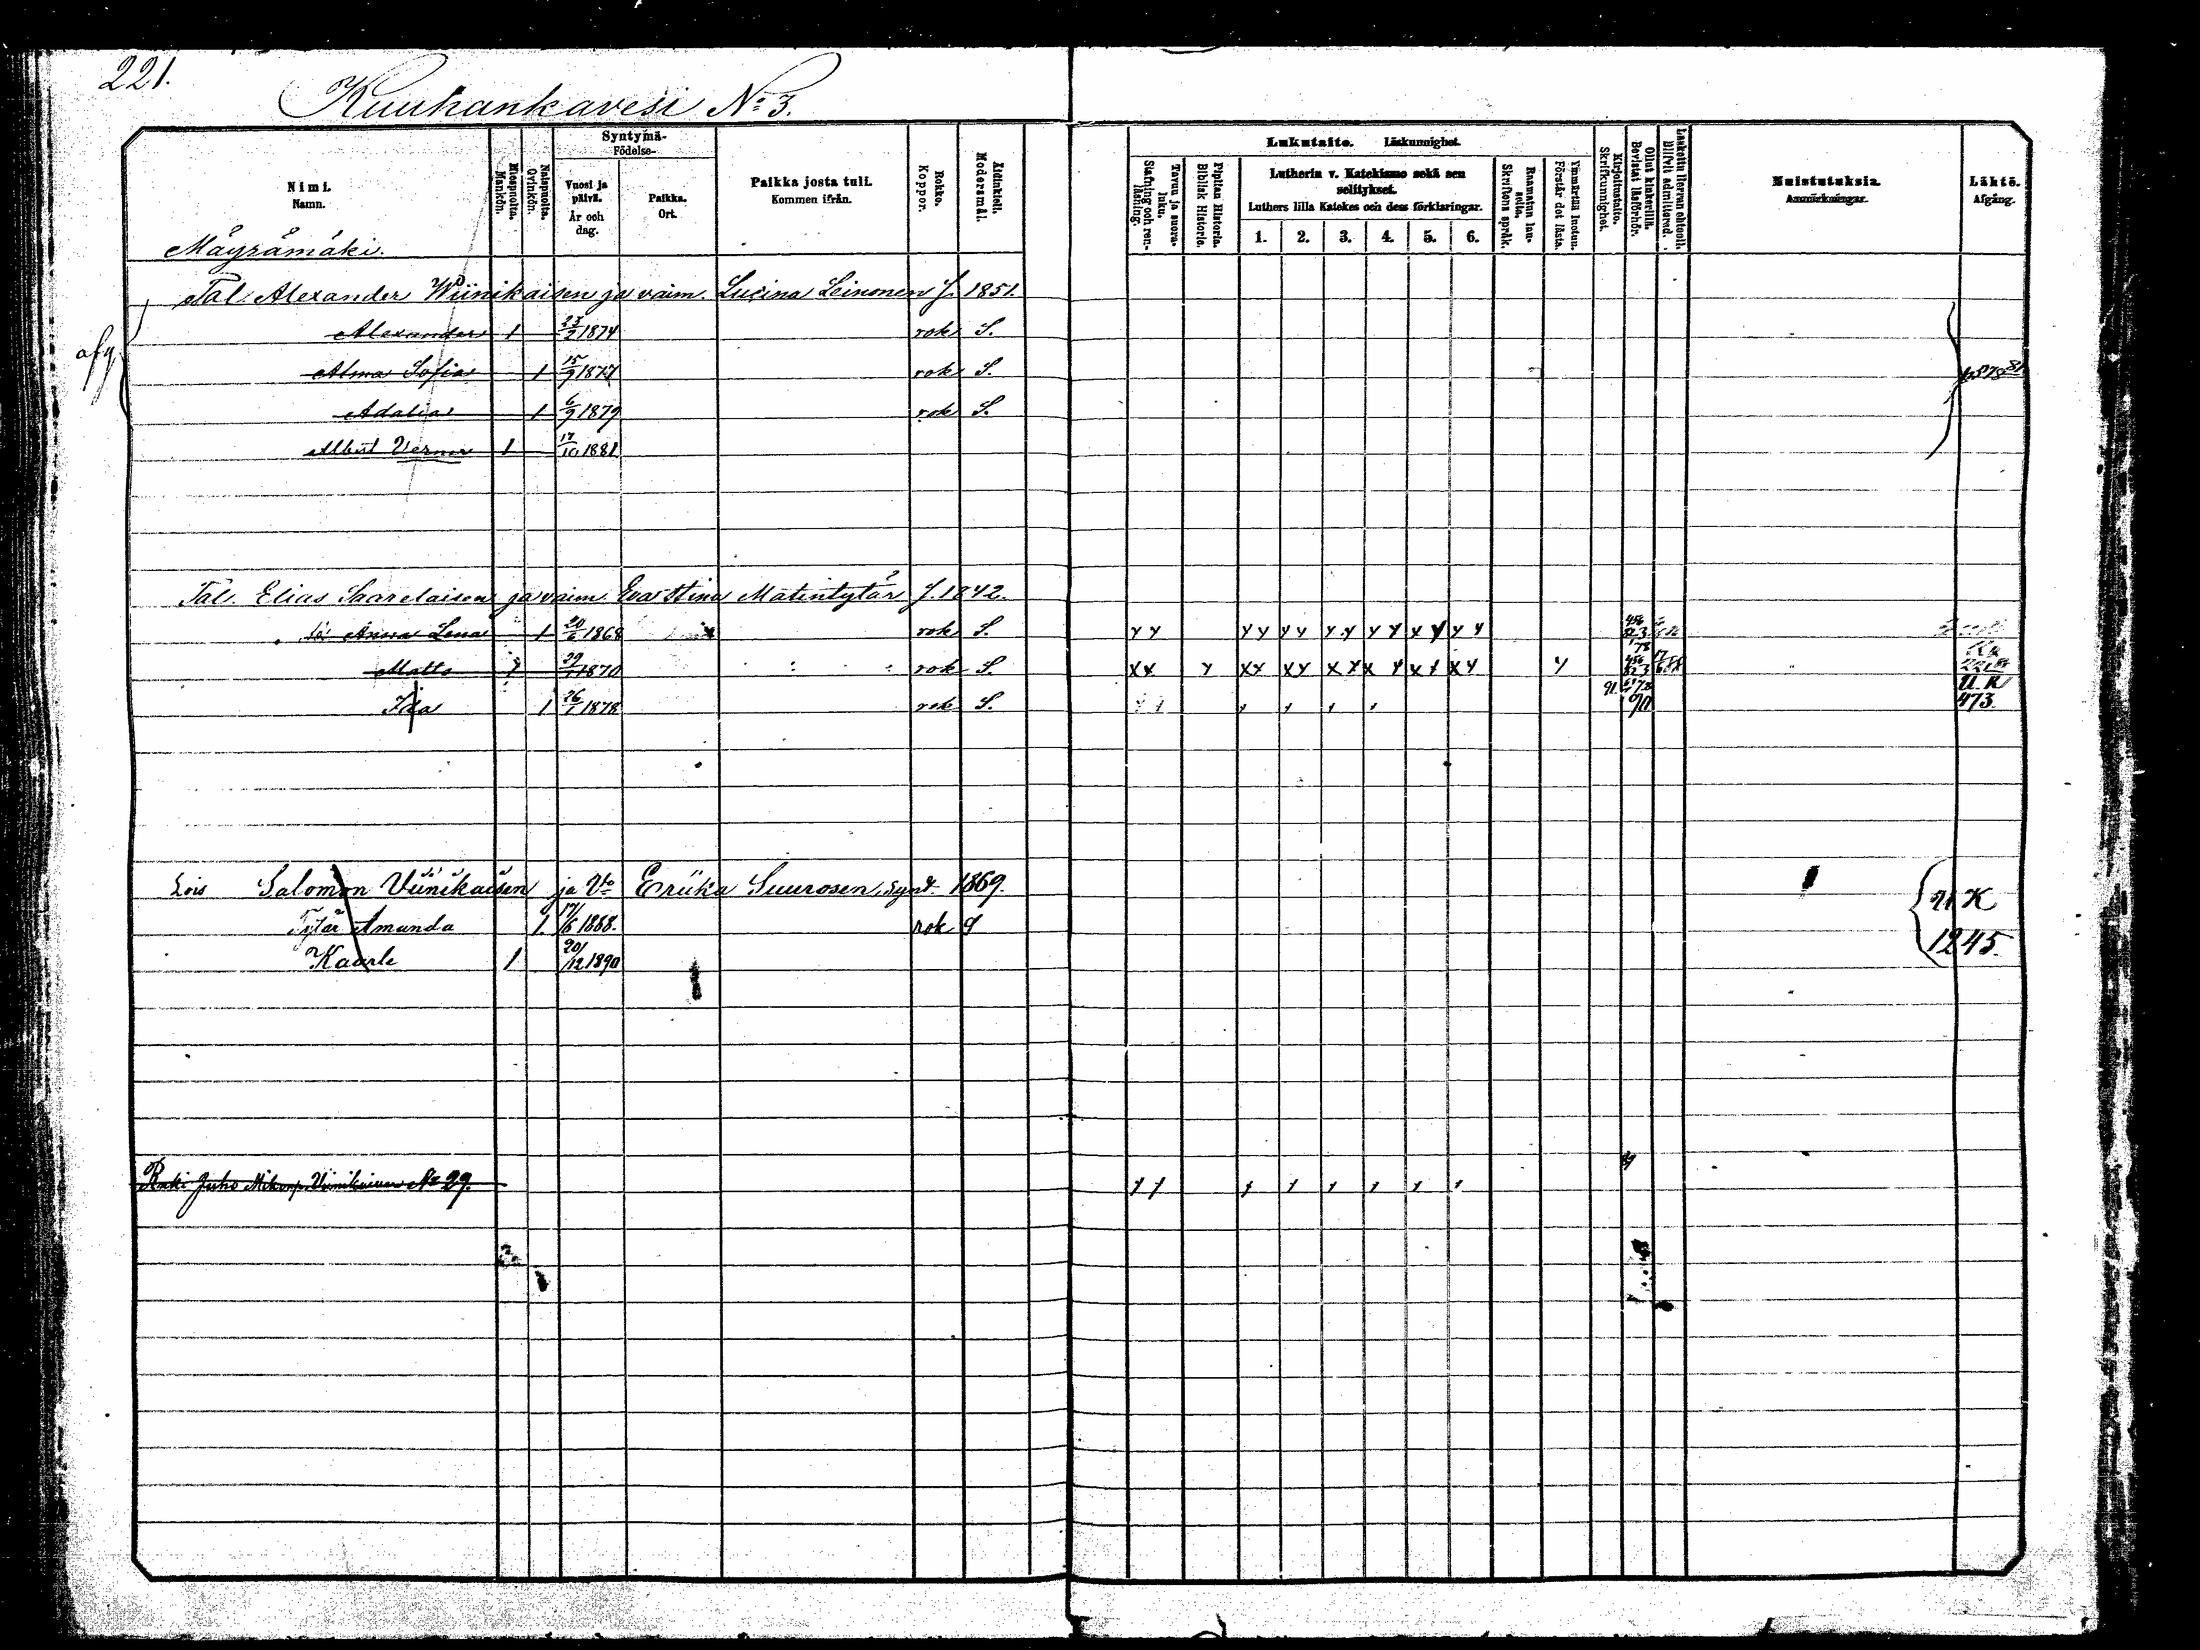 221.
Kuuhankavesi No 3.
Nimi. Namn.
Miespuolta. Mankön.
Naispuolta. Qvinkön.
Syntymä- Födelse-
Vuosi ja päivä. År och dag.
Paikka. Ort.
Paikka josta tuli. Kommen ifrån.
Rokko. Koppor.
Äidinkieli. Modersmål.
Lukutaito. Läskunnighet.
Tavuu ja suora-luku. Stafning och ren-läsning.
Piplian Historia. Biblisk Historie.
Lutherin v. Katekismo sekä sen selitykset.
Luthers lilla Katekes och dess förklaringar.
1. 2. 3. 4. 5. 6.
Raamatun lau-seita. Skriftens språk.
Ymmärtää luetun. Förstår det lästa.
Kirjoitustaito. Skrifkunnighet.
Ollut kinkerillä. Bevistat läsförhör.
Laskettu literan ehtooll. Blifvit admitterad.
Muistutuksia. Anmärkningar.
Lähtö. Afgång.
Mäyrämäki.
Tal. Alexander Wiinikaisen ja vaim. Lucina Leinonen f. 1851.
afg.
Alexander 1 23/2 1874 rok S.
Alma Sofia 1 15/9 1877 rok S.
Adalia 1 6/9 1879 rok S.
Albert Verner 1 17/10 1881
Tal. Elias Saarelaisen ja vaim. Eva Stina Matintytär f. 1842.
Anna Lena 1 20/6 1868 rok S. y y y y y y y y y y x y y y
Matts 1 29/1 1870 rok S. x x y x x x y x x x y x x x y y
Ida 1 26/1 1878 rok S. U.K 473.
Lois Salomon Viinikaisen ja Vo Eriika Suurosen, synt. 1869.
Tytär Amanda 1. 17/6 1888. rok S
Kaarle 1 20/12 1890
U K 1245.
Renki Juho Mikonp. Viinikainen No 29.